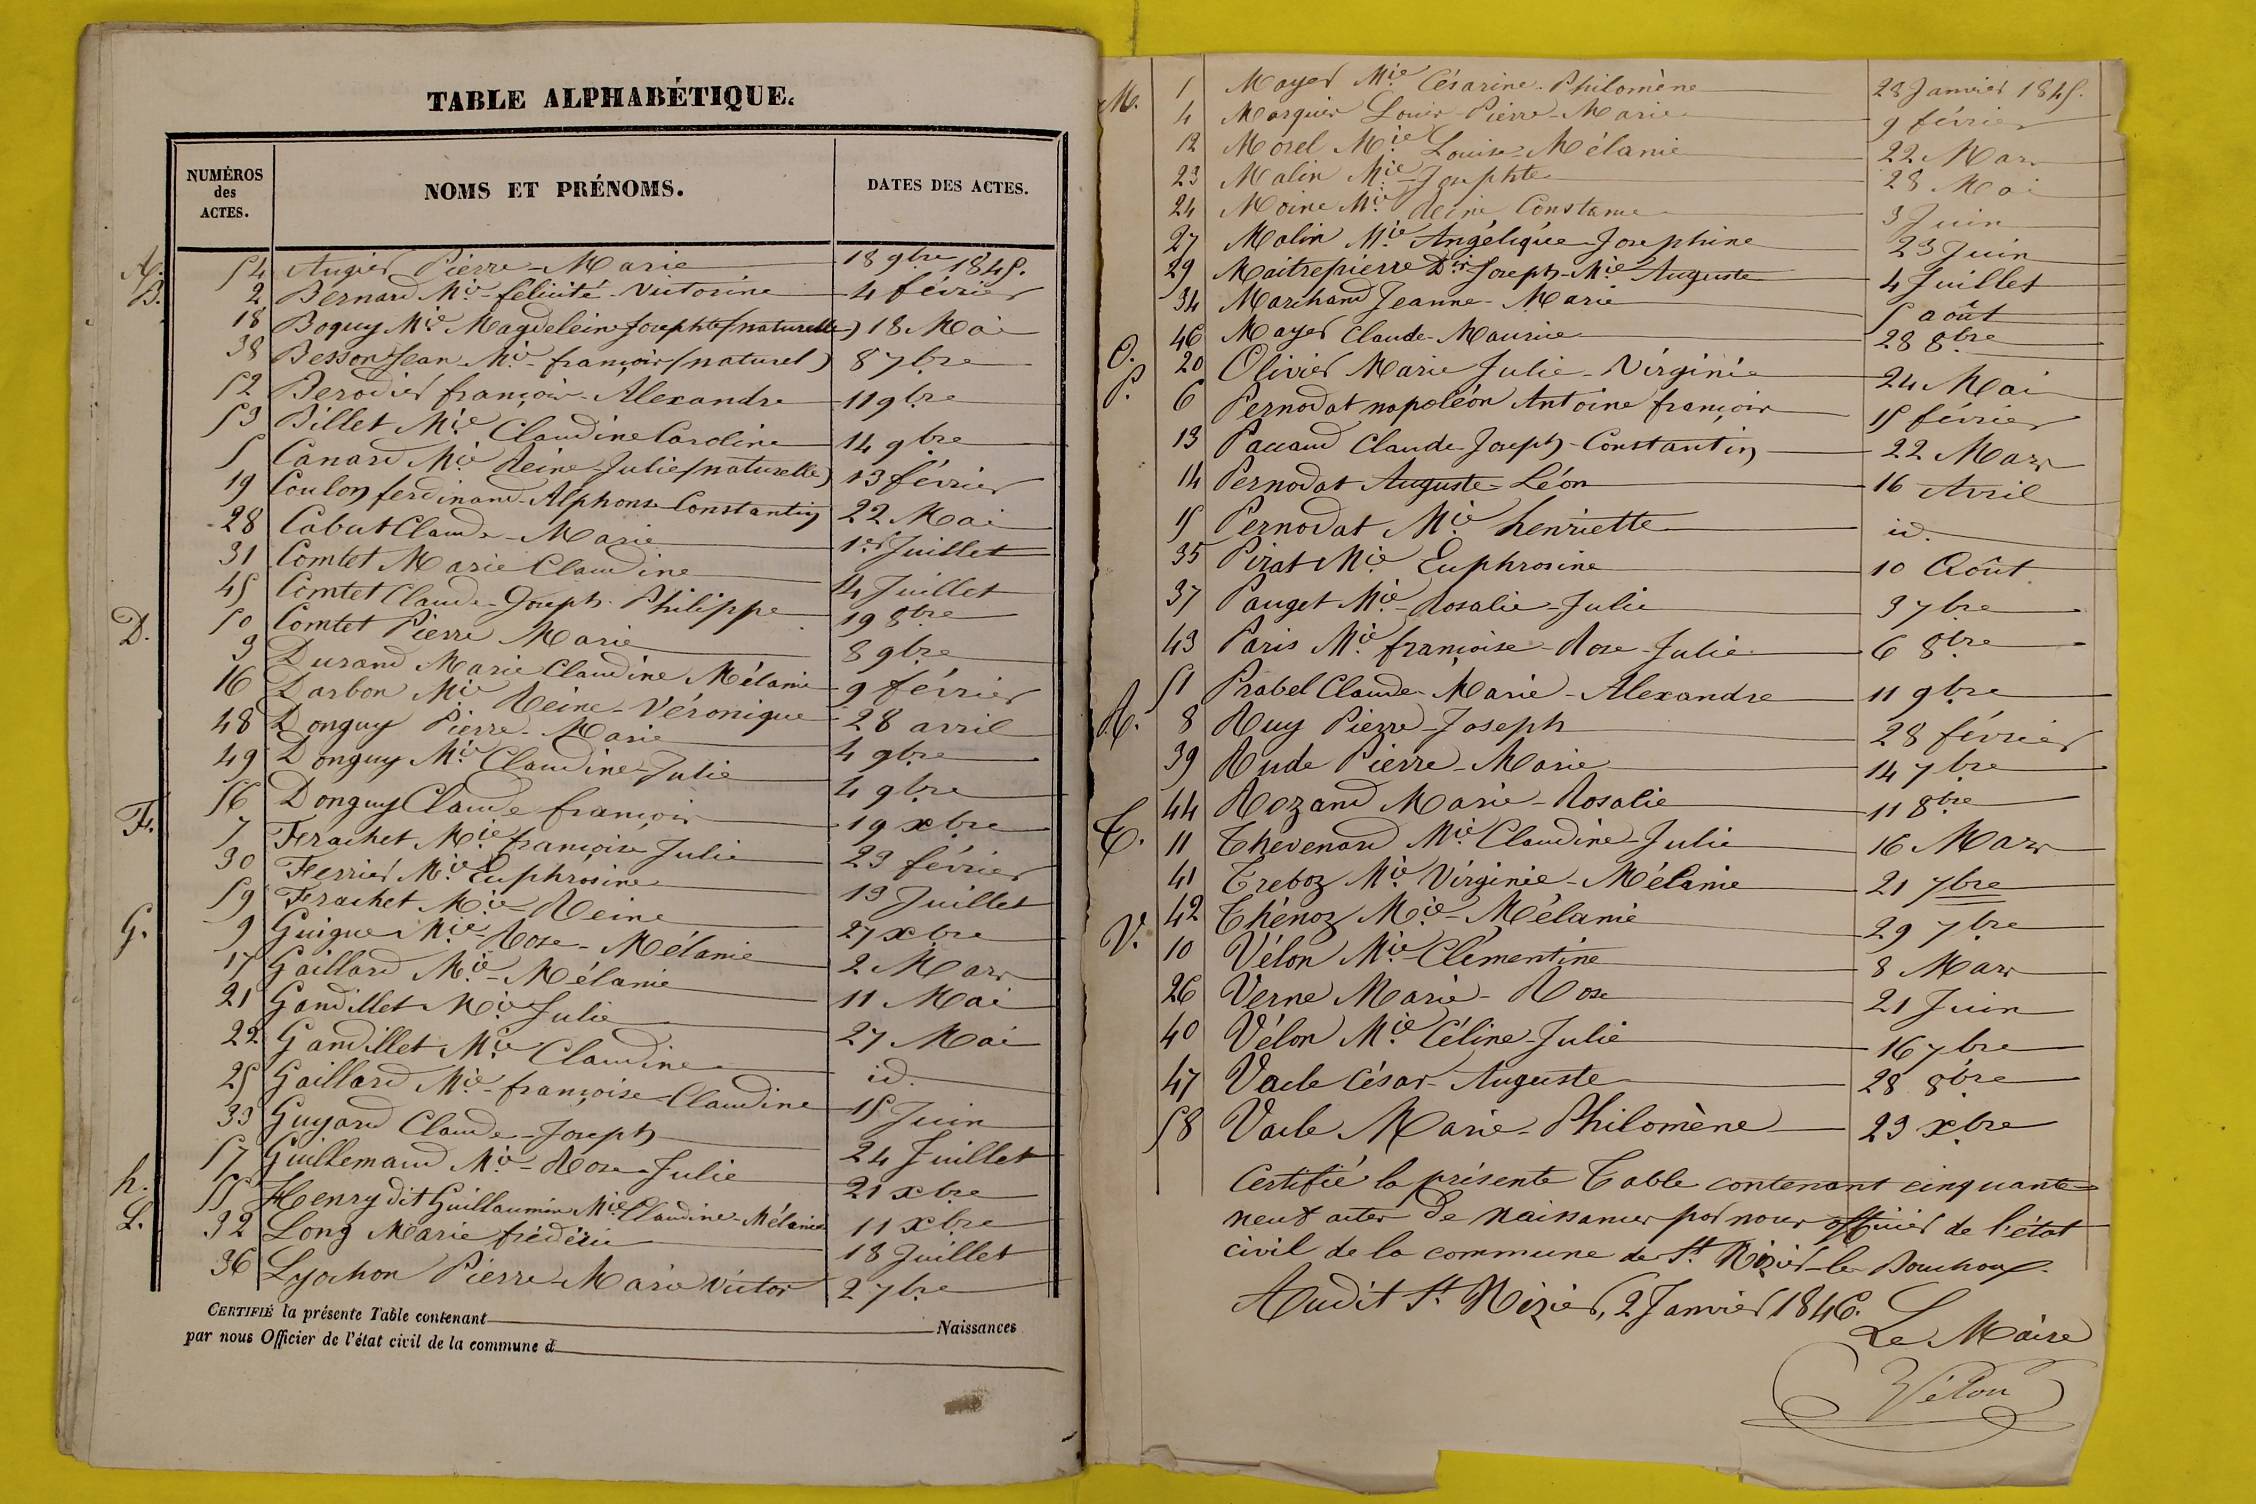 TABLE ALPHABÉTIQUE.
NUMÉROS des ACTES. NOMS ET PRÉNOMS. DATES DES ACTES.
A. 54 Augier Pierre-Marie 18 9bre 1845.
B. 2 Bernard Mie-félicité-Victorine 4 février
18 Boquy Mie Magdeleine Josephte (naturelle) 18 Mai
38 Besson Jean-Mie-françois (naturel) 8 7bre
52 Berodier françois-Alexandre 11 9bre
53 Billet Mie Claudine Caroline 14 9bre
5 Canard Mie Reine-Julie (naturelle) 13 février
19 Coulon ferdinand-Alphonse-Constantin 22 Mai
28 Cabut Claude-Marie 1er Juillet
31 Comtet Marie Claudine 14 Juillet
45 Comtet Claude-Joseph-Philippe 19 8bre
50 Comtet Pierre Marie 8 9bre
D. 3 Durand Marie Claudine Mélanie 9 février
16 Darbon Mie Reine-Véronique 28 avril
48 Donguy Pierre-Marie 4 9bre
49 Donguy Mie Claudine-Julie 4 9bre
56 Donguy Claude françois 19 xbre
F. 7 Frachet Mie françoise Julie 23 février
30 Ferrier Mie Euphrosine 13 Juillet
59 Frachet Mie-Reine 27 xbre
G. 9 Guigue Mie-Rose-Mélanie 2 Mars
17 Gaillard Mie-Mélanie 11 Mai
21 Gandillet Mie Julie 27 Mai
22 Gandillet Mie Claudine id.
25 Gaillard Mie-françoise Claudine 15 Juin
33 Guyard Claude-Joseph 24 Juillet
57 Guillemaud Mie-Rose-Julie 21 xbre
h. 55 Henry dit Guillaumin Mie Claudine-Mélanie 11 xbre
L. 32 Long Marie frédéric 18 Juillet
36 Lyochon Pierre-Marie Victor 2 7bre
CERTIFIÉ la présente Table contenant Naissances
par nous Officier de l'état civil de la commune d
M. 1 Mayer Mie Césarine-Philomène 28 Janvier 1845.
4 Marquis Louis-Pierre-Marie 9 février
12 Morel Mie Louise-Mélanie 22 Mars
23 Malin Mie-Josephte 28 Mai
24 Moine Mie Reine Constance 3 Juin
27 Malin Mie Angélique-Josephine 23 Juin
29 Maitrepierre Dit Joseph-Mie Auguste 4 Juillet
34 Marchand Jeanne-Marie 5 août
46 Mayer Claude-Maurice 28 8bre
O. 20 Olivier Marie Julie-Virginie 24 Mai
P. 6 Pernodat napoléon Antoine françois 15 février
13 Paccaud Claude-Joseph-Constantin 22 Mars
14 Pernodat Auguste-Léon 16 Avril
15 Pernodat Mie henriette id.
35 Pirat Mie Euphrosine 10 Août
37 Pauget Mie-Rosalie-Julie 3 7bre
43 Paris Mie françoise-Rose-Julie 6 8bre
51 Prabel Claude-Marie-Alexandre 11 9bre
R. 8 Ruy Pierre-Joseph 28 février
39 Rude Pierre-Marie 14 7bre
44 Rozand Marie-Rosalie 11 8bre
T. 11 Thevenard Mie Claudine-Julie 16 Mars
41 Treboz Mie Virginie-Mélanie 21 7bre
42 Thénoz Mie-Mélanie 29 7bre
V. 10 Vélon Mie-Clémentine 8 Mars
26 Verne Marie-Rose 21 Juin
40 Vélon Mie Céline-Julie 16 7bre
47 Vacle César-Auguste 28 8bre
58 Vacle Marie-Philomène 23 xbre
Certifié la présente Table contenant cinquante
neuf actes de naissances par nous officier de l'état
civil de la commune de St. Nizier-le-Bouchoux.
Audit St. Nizier, 2 Janvier 1846.
Le Maire
Vélon